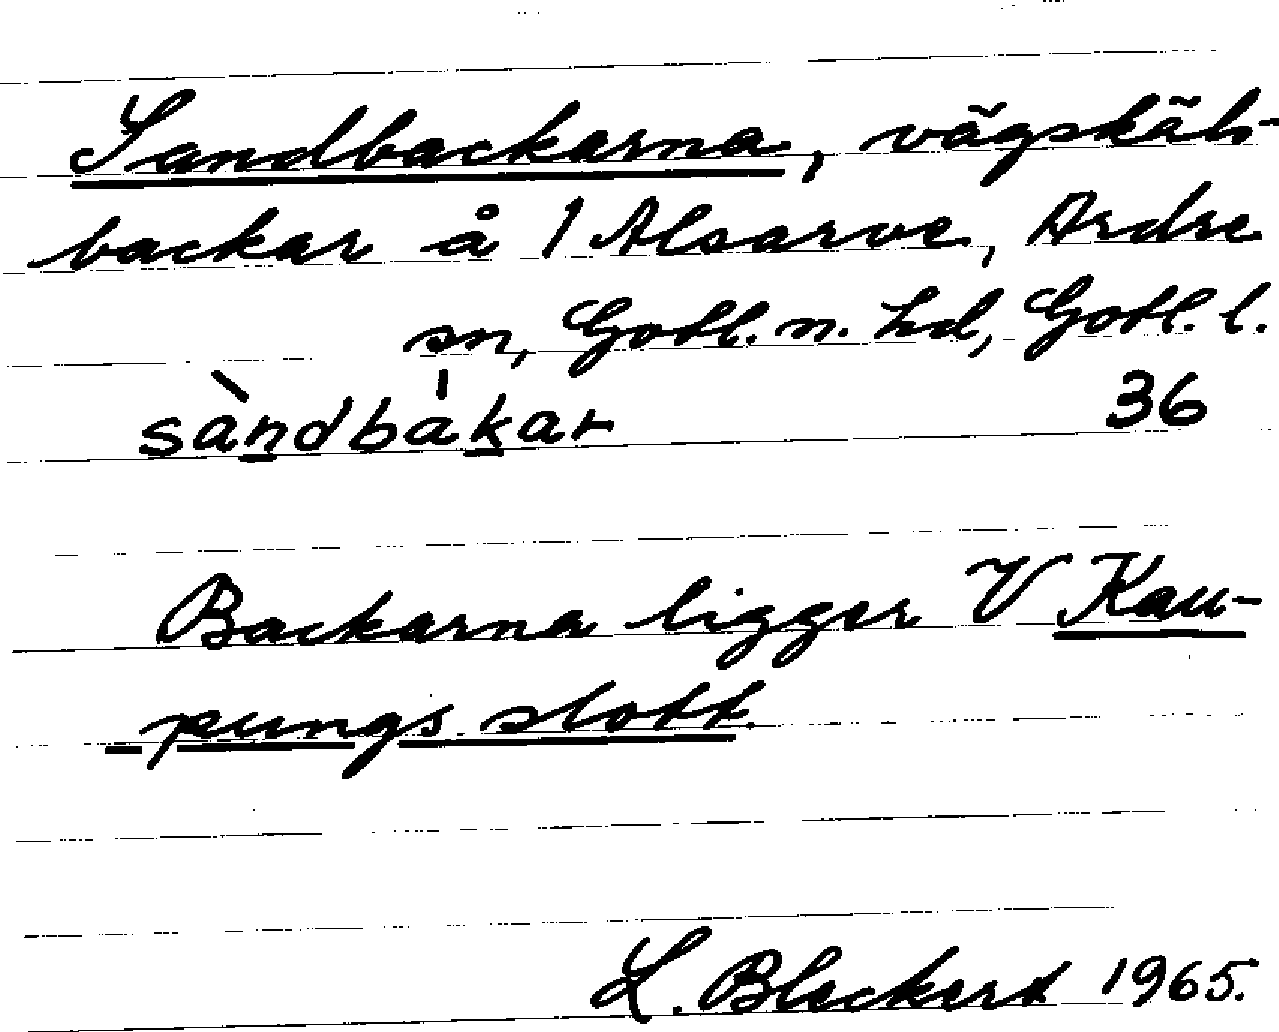 Sandbackarna, vägskäls-
backar å 1 Alsarve, Ardre
sn, Gotl. n. hd, Gotl. l.
sàndbákar 36
Backarna ligger V Kau-
pungs slott.
L. Bleckert 1965.